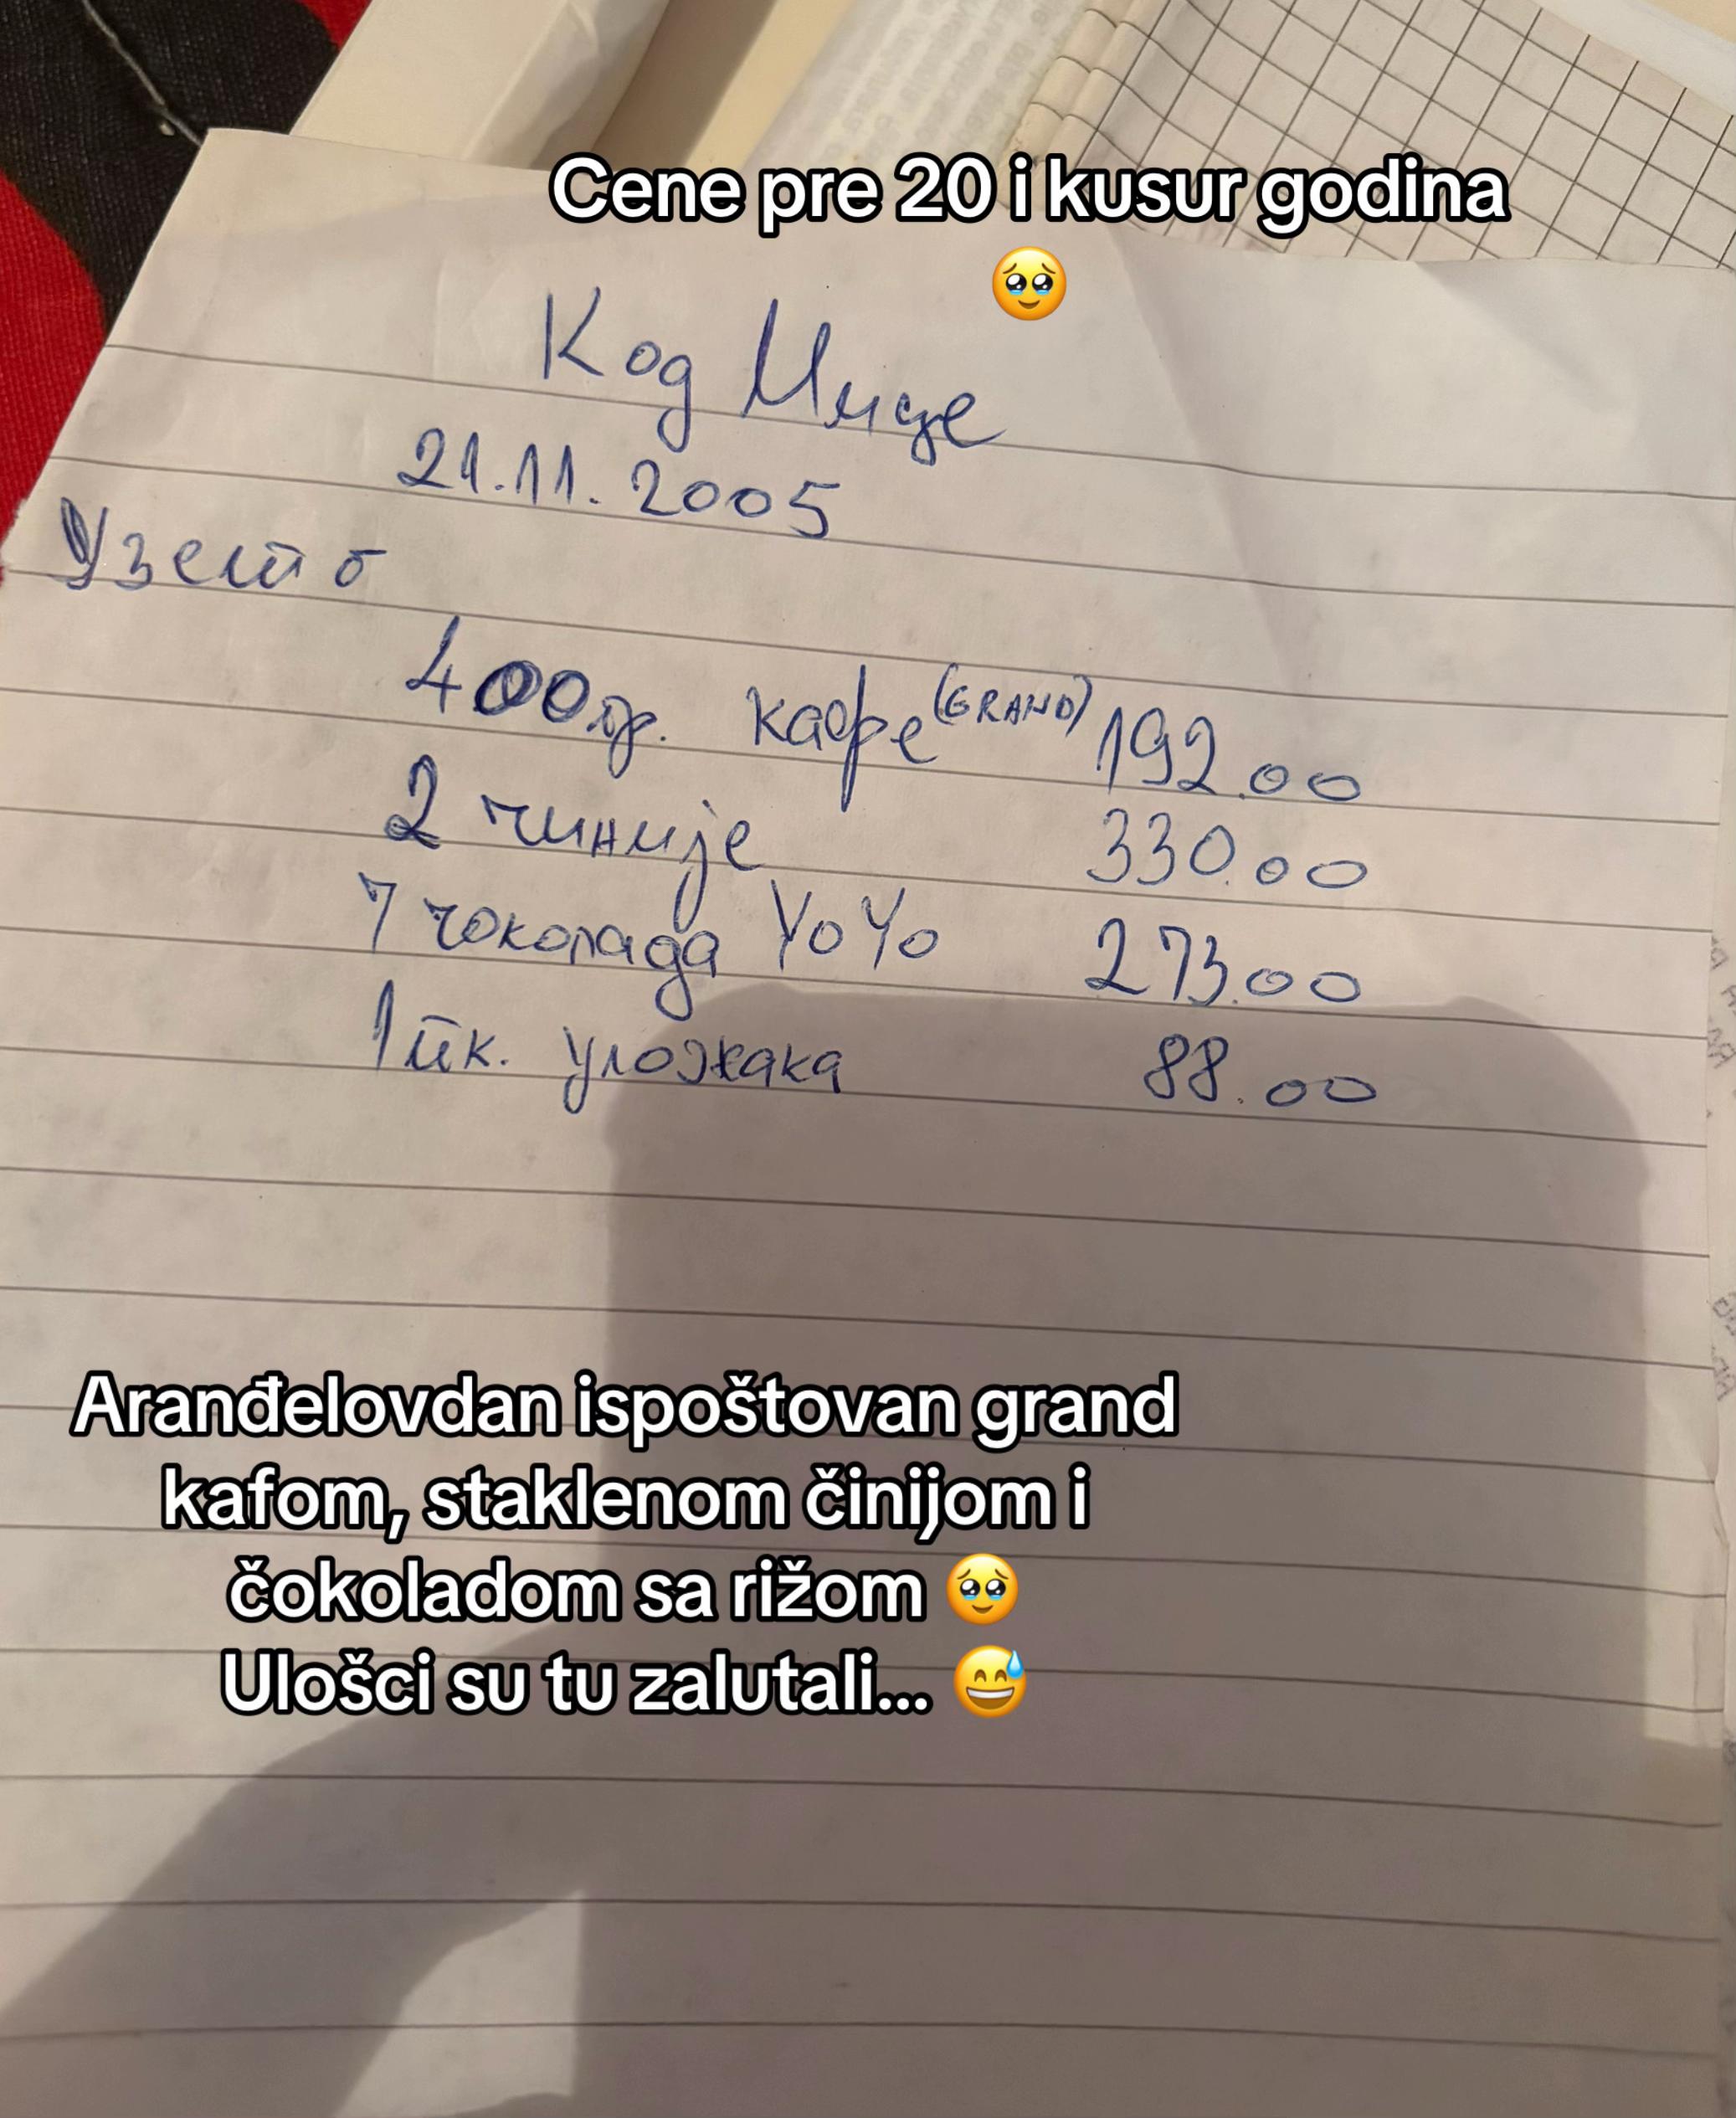 Cene pre 20 i kusur godina
🥹
Код Мице
21.11.2005
Узето
400гр. кафе (GRAND) 192.00
2 чиније 330.00
7 чоколада YoYo 273.00
1 пк. уложака 88.00
Aranđelovdan ispoštovan grand
kafom, staklenom činijom i
čokoladom sa rižom 🥹
Ulošci su tu zalutali... 😅